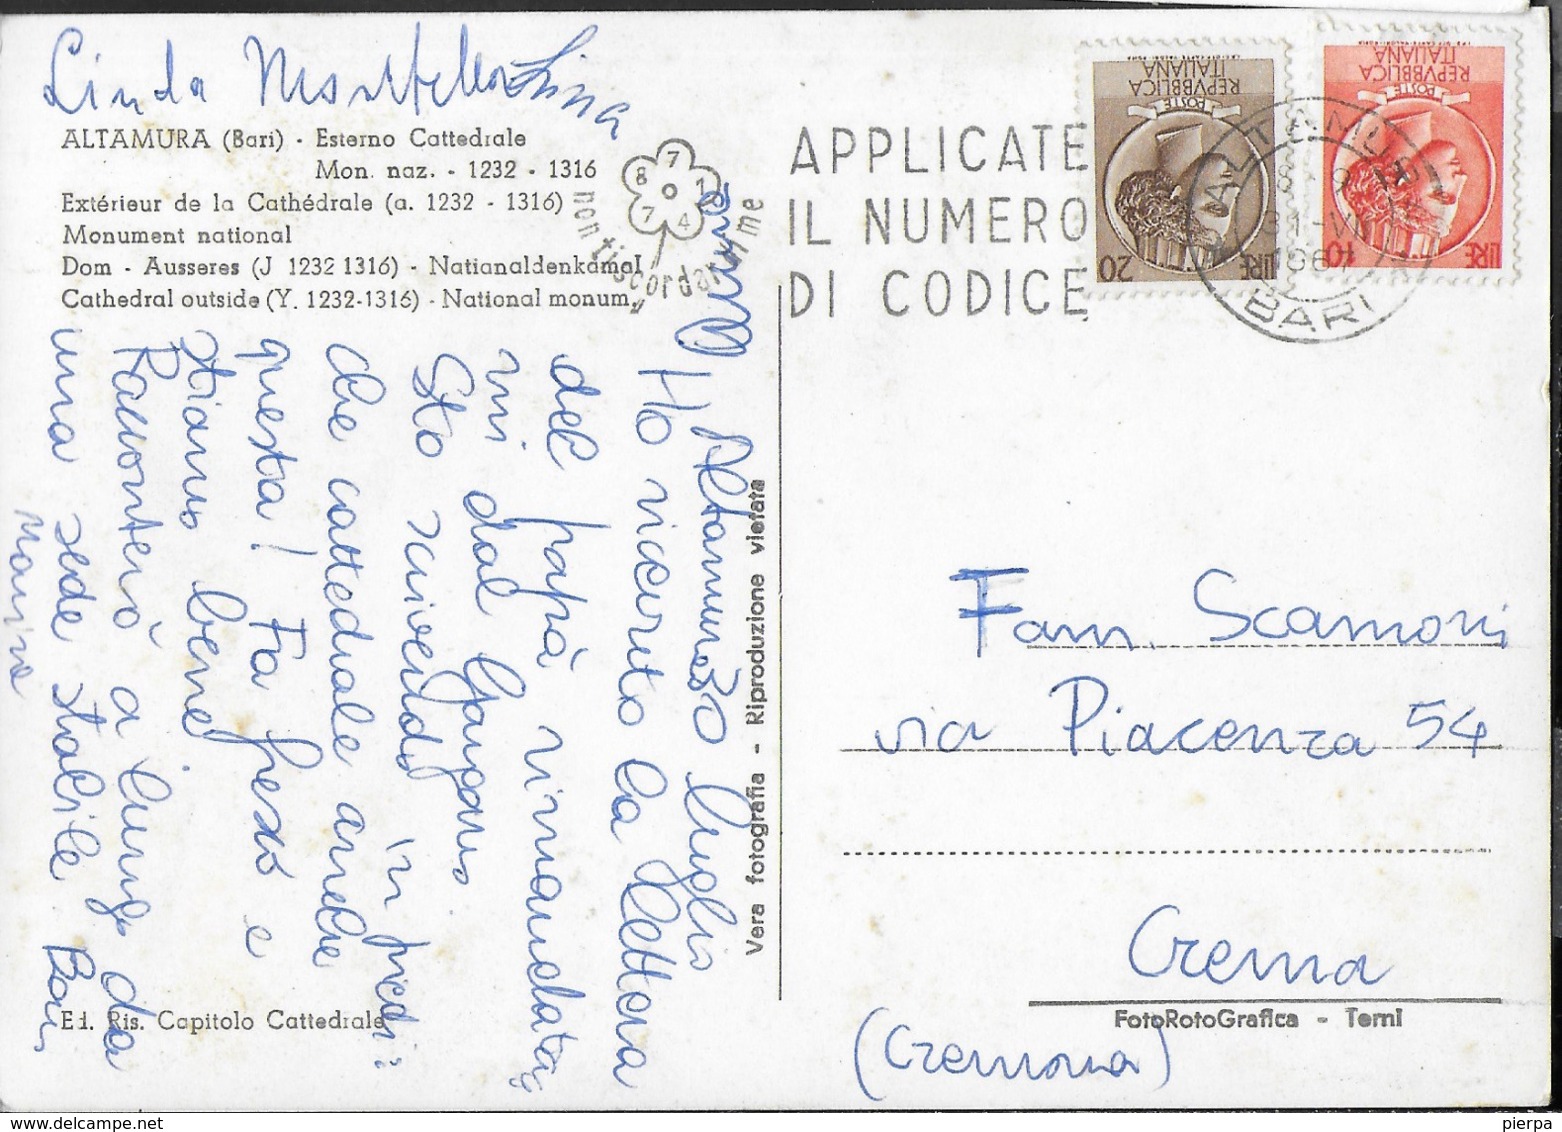 Linda Lina
ALTAMURA (Bari) - Esterno Cattedrale
Mon. naz. - 1232 - 1316
Extérieur de la Cathédrale (a. 1232 - 1316)
Monument national
Dom - Ausseres (J 1232 1316) - Natianaldenkamal
Cathedral outside (Y. 1232-1316) - National monum.
Altamura 30 luglio
Ho ricevuto la lettera
del papà rimandata
mi dal Gargano.
Sto scrivendo in piedi:
che cattedrale anche
questa! Fa fresco e
stiamo bene.
Racconterò a lungo da
una sede stabile Bari
Marisa
Ed. Ris. Capitolo Cattedrale
Vera fotografia - Riproduzione vietata
8 7 1 7 4
non ti scordar di me
APPLICATE
IL NUMERO
DI CODICE
POSTE
REPVBBLICA
ITALIANA
LIRE 20
POSTE
REPVBBLICA
ITALIANA
LIRE 10
ALTAMURA
BARI
Fam. Scamoni
via Piacenza 54
Crema
(Cremona)
FotoRotoGrafica - Terni
pierpa